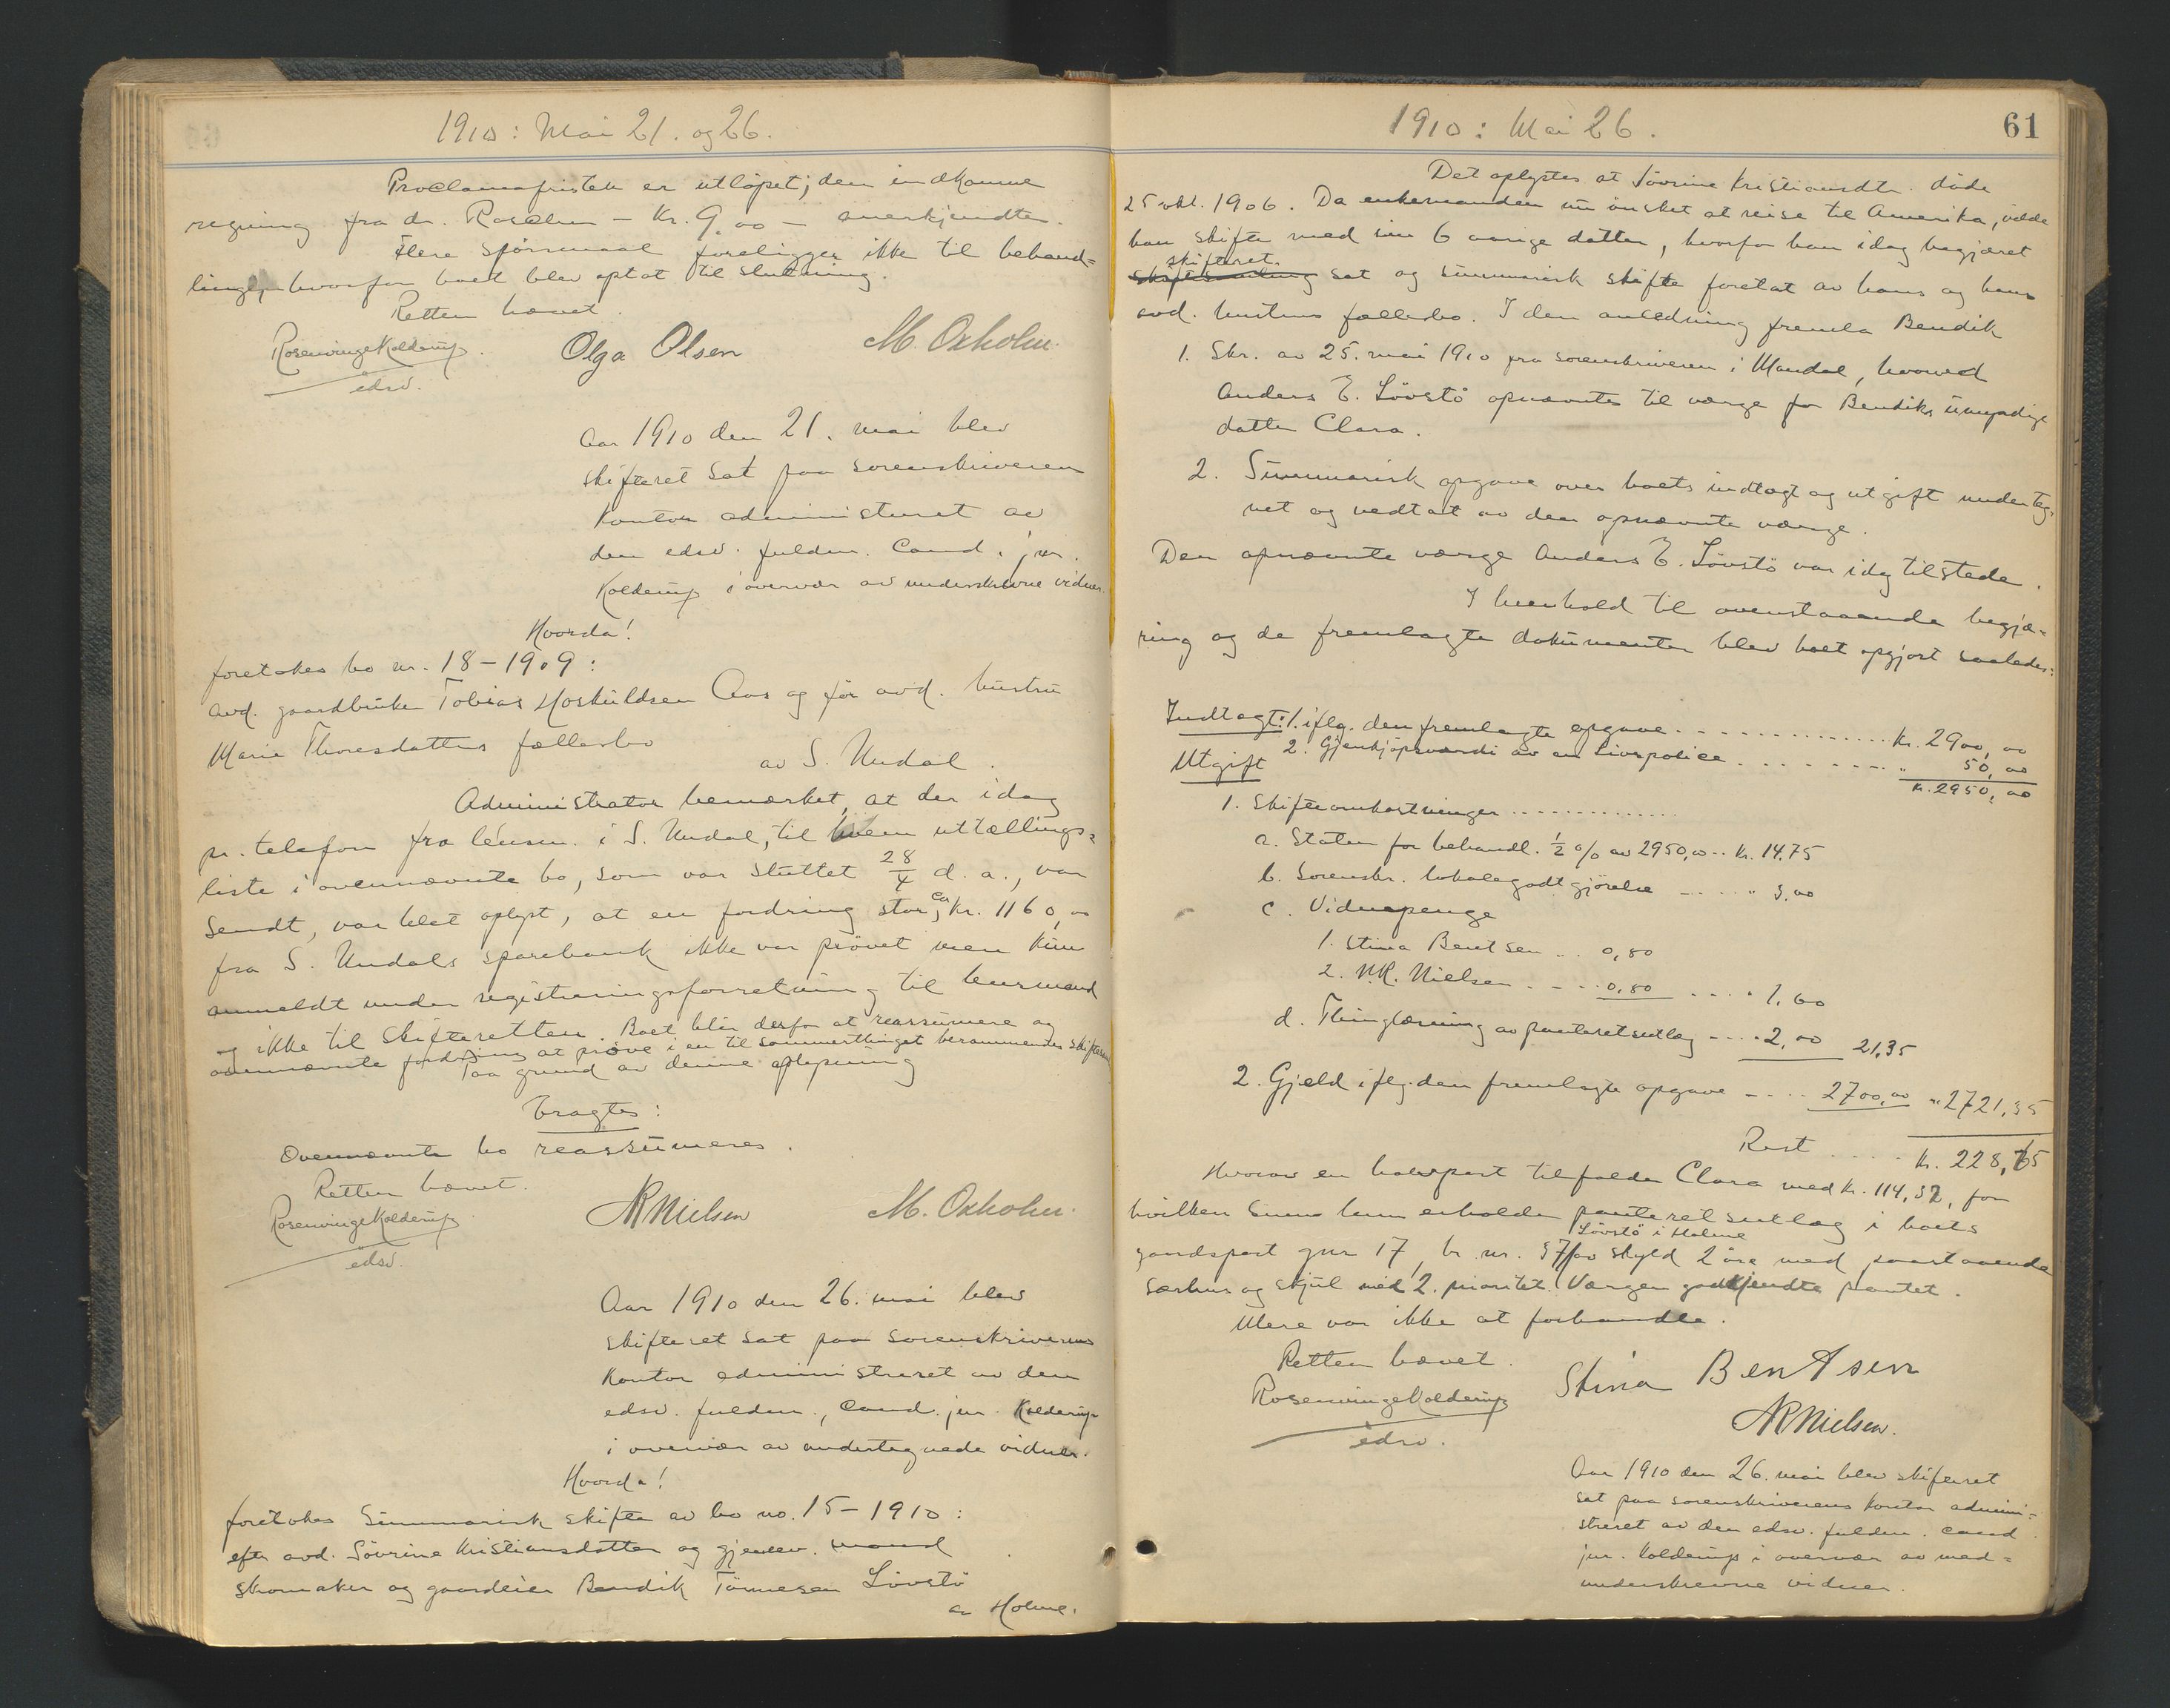 1910: Mai 21. og 26.
Proclamafristen er utløpet; den indkomne
regning fra dr. Rosalen - Kr. 9,00 - anerkjendtes.
Flere spörsmaal foreligger ikke til behand=
ling, hvorfor boet blev optat til slutning.
Retten hævet.
Rosenvinge Kolderup
edsv.
Olga Olsen
M. Oxholm.
Aar 1910 den 21. mai blev
skifteret sat paa sorenskriveren
kontor administreret av
den edsv. fuldm. Cand. jur.
Kolderup i overvær av underskrevne vidner
Hvorda!
foretokes bo nr. 18-1909:
avd. gaardbruker Tobias Hoskuldsen Aas og før avd. hustru
Marie Thoresdatters fællesbo
av S. Undal.
Administrator bemærket, at der idag
pr. telefon fra lensm. i S. Undal, til hvem uttællings=
liste i ovennævnte bo, som var sluttet 28/4 d. a., var
sendt, var blet oplyst, at en fordring stor ca, kr. 1160,00
fra S. Undals sparebank ikke var prövet men kun
anmeldt under registreringsforretning til lensmand
og ikke til Skifteretten. Boet blir derfor at reassumere og
ovennævnte fordring at pröve i en til sommerthinget berammendes skiftesaml.
Paa grund av denne oplysning
Eragtes:
Ovennævnte bo reassumeres.
Retten hævet.
Rosenvinge Kolderup
edsv.
NRNielsen
M. Oxholm.
Aar 1910 den 26. mai blev
skifteret sat paa sorenskriverens
Kontor administreret av den
edsv. fuldm., Cand. jur. Kolderup
i overvær av undertegnede vidner.
Hvorda!
foretokes Summarisk skifte av bo no. 15-1910:
efter avd. Sövrine Kristiansdatter og gjenlev. mand
skomaker og gaardeier Bendik Tönnesen Lövstö
av Holme.
1910: Mai 26.
61
Det oplystes at Sövrine Kristiansdtr. döde
25 okt. 1906. Da enkemanden nu önsket at reise til Amerika, vilde
han skifte med sin 6 aarige datter, hvorfor han idag begjæret
skifteret.
skiftesamling sat og summarisk skifte foretat av hans og hans
avd. hustrus fællesbo. I den anledning fremla Bendik
1. Skr. av 25. mai 1910 fra sorenskriveren i Mandal, hvorved
Anders E. Lövstö opnævntes til værge for Bendiks umyndige
datter Clara.
2. Summarisk opgave over boets indtægt og utgift underteg=
net og vedtat av den opnævnte værge.
Den opnævnte værge Anders E. Lövstö var idag tilstede.
I henhold til ovenstaaende begjæ=
ring og de fremlagte dokumenter blev boet opgjort saaledes:
Indtægt: 1. iflg. den fremlagte opgave ............. Kr. 2900,00
2. Gjenkjöpsværdi av en Livspolice ........ " 50,00
Kr. 2950,00
Utgift
1. Skifteomkostninger .............
a. Staten for behandl. ½ % av 2950,00 .. kr. 14,75
b. Sorenskr. lokalegodtgjörelse ..... " 3,00
c. Vidnepenge
1. Stina Bentsen ... 0,80
2. N.R. Nielsen ... 0,80 .... 1,60
d. Thinglæsning av panteretsutlæg .... 2,00 21,35
2. Gjæld iflg. den fremlagte opgave .... 2700,00 " 2721,35
Rest ..... Kr. 228,65
Hvorav en halvpart tilfalder Clara med kr. 114,32, for
hvilken Sum hun erholder panteretsutlæg i boets
Lövstö i Holme
gaardspart gnr 17, br. nr. 37 av skyld 2 öre med paastaaende
sæshus og skjul med 2. prioritet. Værgen godkjendte pantet.
Mere var ikke at forhandle.
Retten hævet.
Rosenvinge Kolderup
edsv.
Stina Bentsen
NRNielsen.
Aar 1910 den 26. mai blev skifteret
sat paa sorenskriverens kontor admini=
streret av den edsv. fuldm. cand.
jur. Kolderup i overvær av med=
underskrevne vidner.